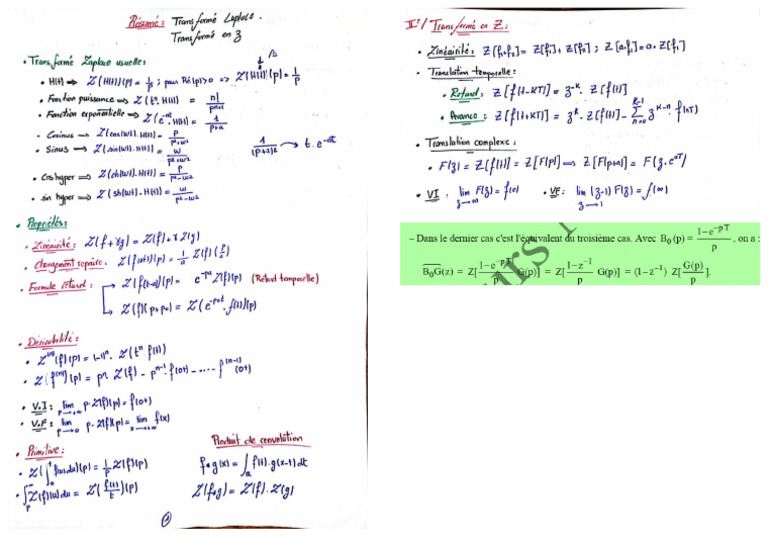 Résumé: Transformé Laplace.
Transformé en z
• Transformé Laplace usuelle:
• H(t) → Z(H(t))(p) = 1/p ; pour Ré(p)>0 => Z(H(t))(p) = 1/p
• Fonction puissance → Z(tⁿ. H(t)) = n!/pⁿ⁺¹
• Fonction exponentielle → Z(e⁻ᵃᵗ. H(t)) = 1/(p+a)
• Cosinus → Z(cos(wt). H(t)) = p/(p²+w²)
1/(p+a)² → t. e⁻ᵃᵗ
• Sinus → Z(sin(wt). H(t)) = w/(p²+w²)
• Cos hyper => Z(ch(wt). H(t)) = p/(p²-w²)
• sin hyper => Z(sh(wt). H(t)) = w/(p²-w²)
• Propriétés:
• Linéairité: Z(f+γg) = Z(f)+γZ(g)
• Changement repaire: Z(f(at))(p) = 1/a Z(f)(p/a)
• Formule retard: → Z(f(t-a))(p) = e⁻ᵖᵃ Z(f)(p) (Retard temporelle)
→ Z(f)(p+p₀) = Z(e⁻ᵖ⁰ᵗ. f(t))(p)
• Dérivabilité:
• Z⁽ⁿ⁾(f)(p) = (-1)ⁿ. Z(tⁿ. f(t))
• Z(f⁽ⁿ⁾)(p) = pⁿ. Z(f) - pⁿ⁻¹. f(0+) - .... - f⁽ⁿ⁻¹⁾(0+)
• V.I: lim p→+∞ p. Z(f)(p) = f(0+)
• V.F: lim p→0 p. Z(f)(p) = lim x→+∞ f(x)
• Primitive:
• Z(∫₀ᵗ f(u)du)(p) = 1/p Z(f)(p)
• ∫ₚ^+∞ Z(f)(u)du = Z(f(t)/t)(p)
Produit de convolution
f*g(x) = ∫ f(t). g(x-t)dt
Z(f*g) = Z(f). Z(g)
II°/ Transformé en Z:
• Linéairité: Z[f₁+f₂] = Z[f₁]+Z[f₂] ; Z[a.f₁] = a. Z[f₁]
• Translation temporelle:
• Retard: Z[f(t-KT)] = z⁻ᴷ. Z[f(t)]
• Avance: Z[f(t+KT)] = zᴷ. Z[f(t)] - Σ n=0 K-1 zᴷ⁻ⁿ. f(nT)
• Translation complexe:
• F(z) = Z[f(t)] = Z[F(p)] => Z[F(p+a)] = F(z.eᵃᵀ)
• VI: lim z→∞ F(z) = f(0) • VF: lim z→1 (z-1) F(z) = f(∞)
– Dans le dernier cas c'est l'équivalent du troisième cas. Avec B₀(p) = (1–e⁻ᵖᵀ)/p, on a :
B₀G(z) = Z[(1–e⁻ᵖᵀ)/p G(p)] = Z[(1–z⁻¹)/p G(p)] = (1–z⁻¹) Z[G(p)/p].